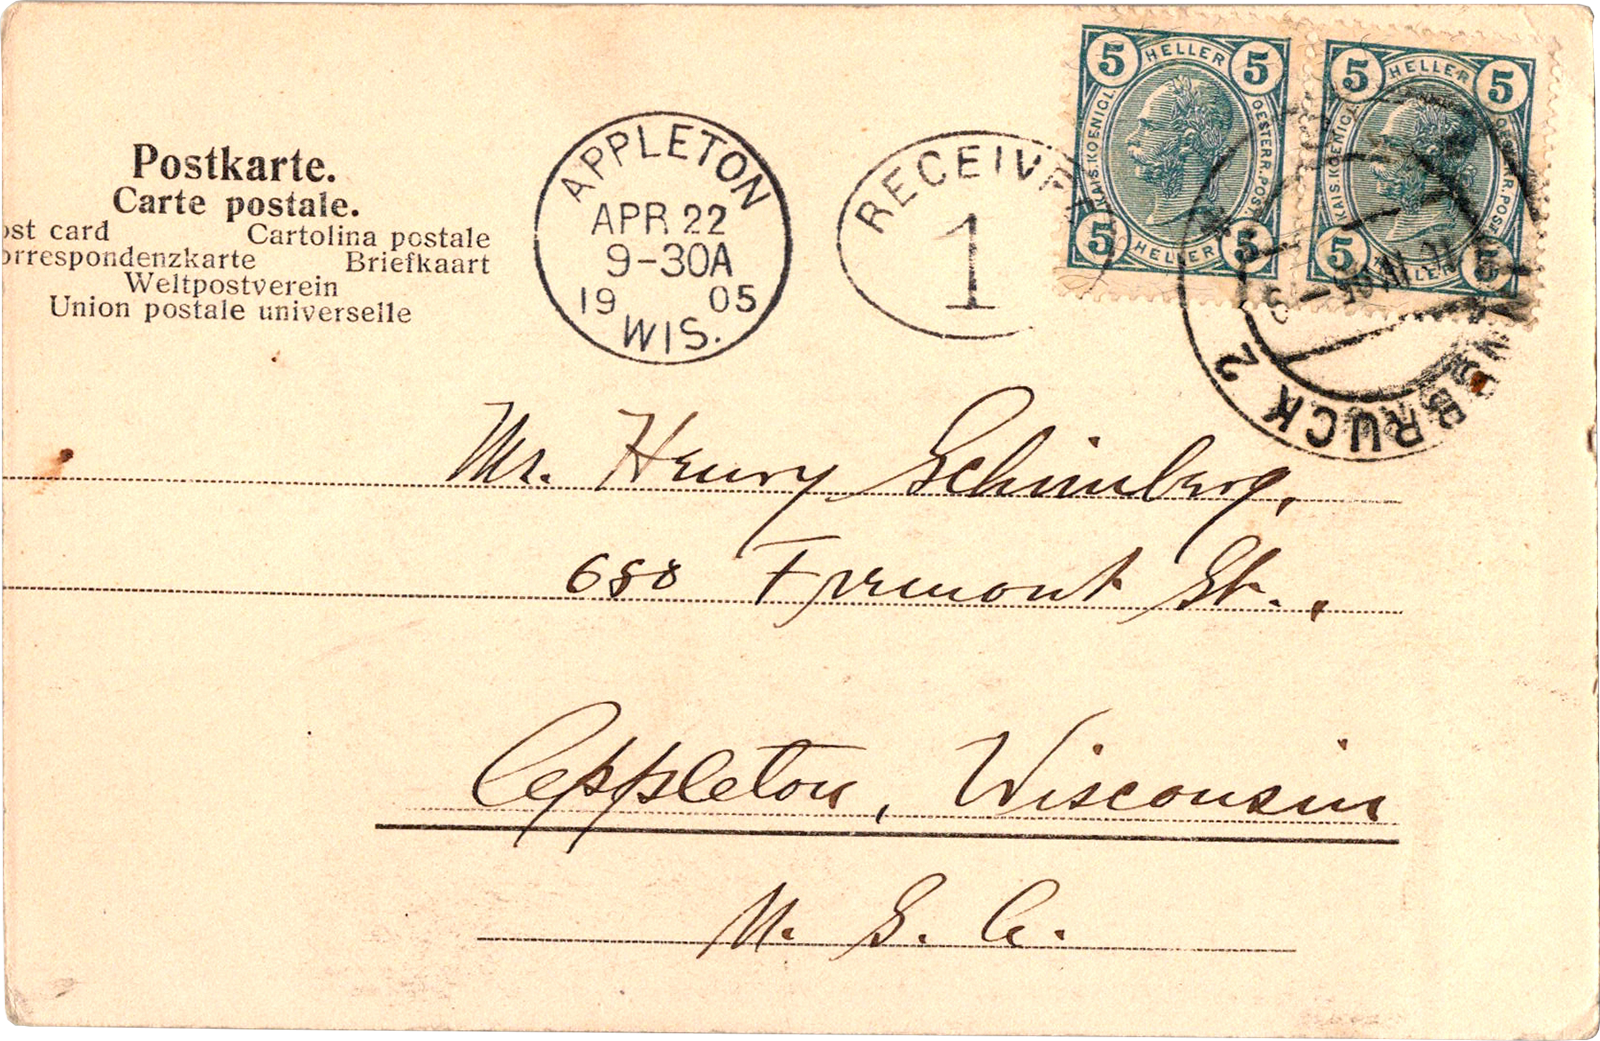 Postkarte.
Carte postale.
ost card Cartolina postale
orrespondenzkarte Briefkaart
Weltpostverein
Union postale universelle
APPLETON
APR 22
9-30A
19 05
WIS.
RECEIV
1
5 HELLER 5
KAIS. KOENIGL. OESTERR. POST.
5 HELLER 5
5 HELLER 5
KAIS. KOENIGL. OESTERR. POST.
5 HELLER 5
INNSBRUCK 2
Mr. Henry Schimberg,
688 Fremont St.,
Appleton, Wisconsin
U. S. A.